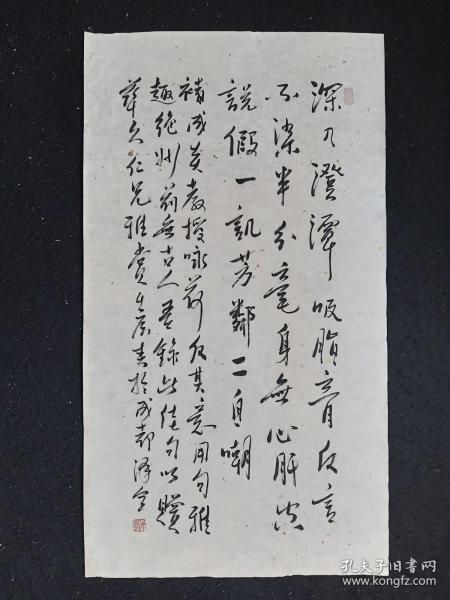 深乃澄潭吸脂膏反言
不染半分毫身無心肝
說假一訊芳鄰二自嘲
褚成炎教授咏荷反其意用句雅
趣絕妙前無古人吾錄此佳句以贖
久仁兄雅賞於成都
孔夫子旧书网
www.kongfz.com